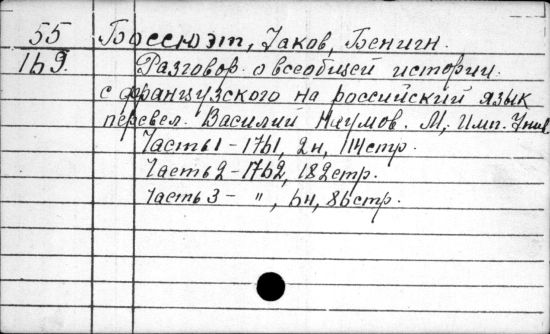 55 Боссюэт, Јаков, Бенигн.
169. Разговор о всеобщей истории.
с французского на российский язык
перевел. Василий Наумов. М, Имп. Унив
Часть 1 – 1761, 2н, 114стр.
Часть 2 – 1762, 182стр.
Часть 3 – ", 6н, 86стр.